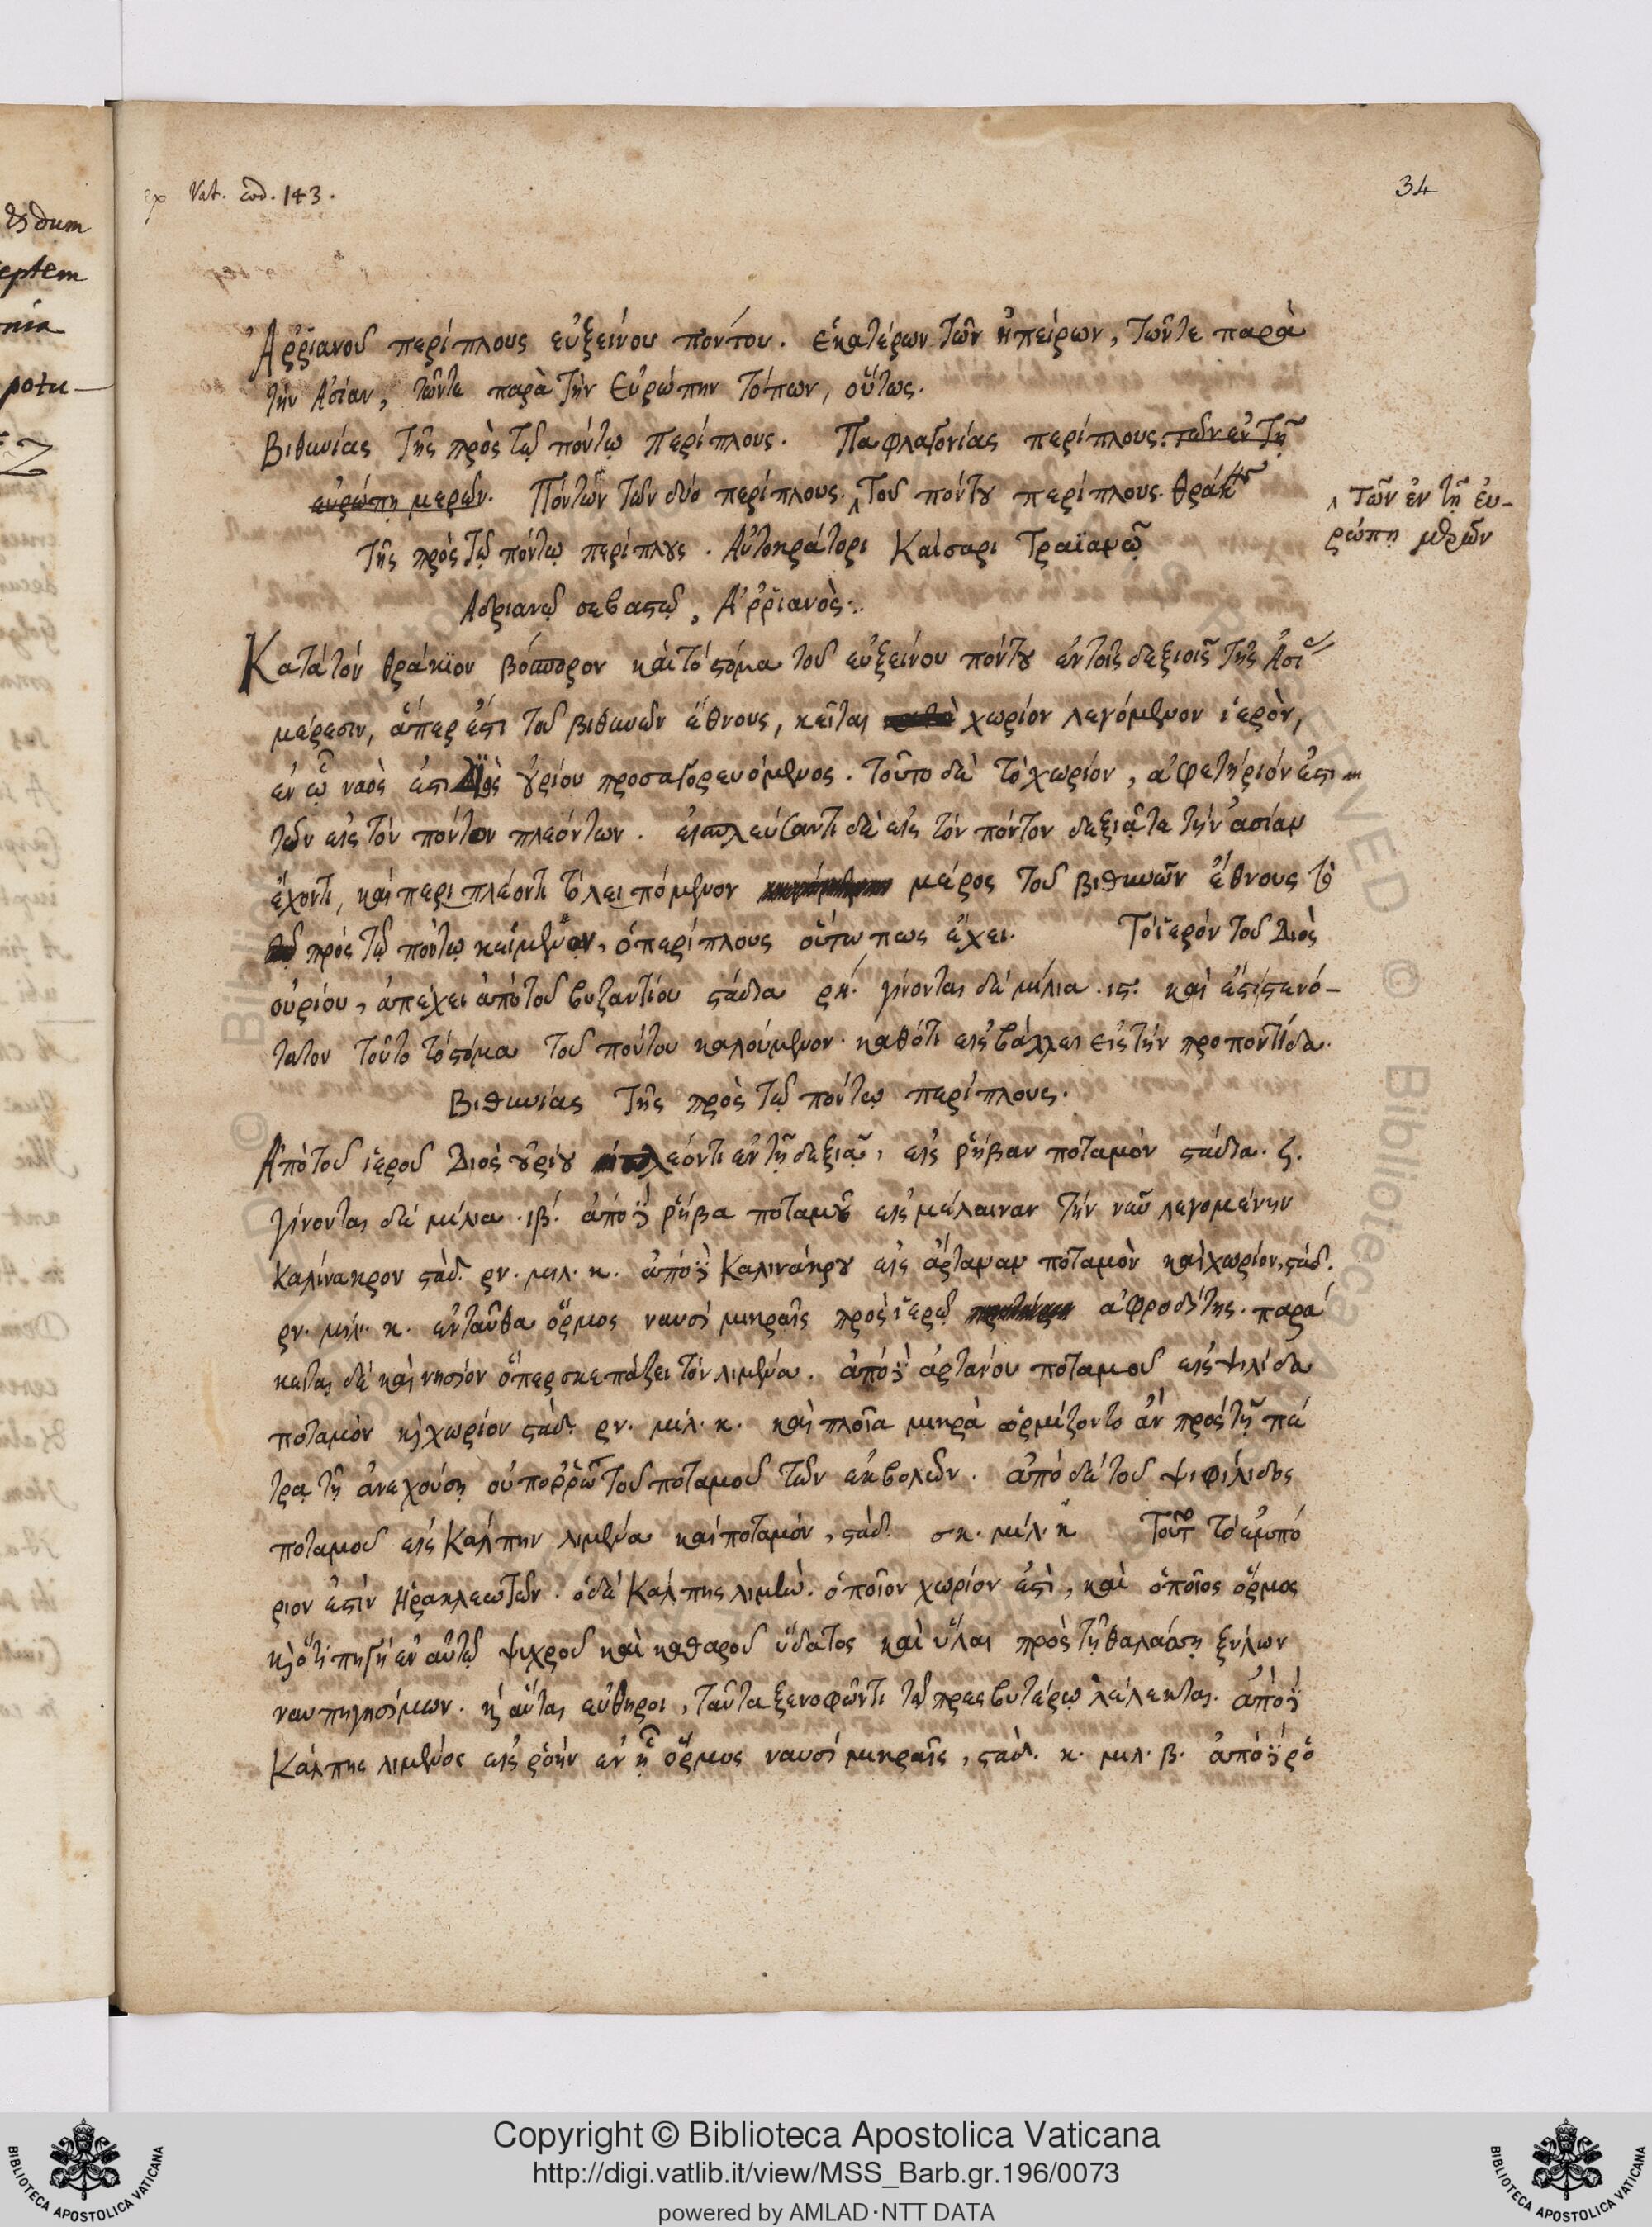 ex Vat. cod. 143.
34
Ἀῤῥιανοῦ περίπλους εὐξείνου πόντου. ἑκατέρων τῶν ἠπείρων, τῶντε παρὰ
τὴν Ἀσίαν, τῶντε παρὰ τὴν Εὐρώπην τόπων, οὕτως.
Βιθυνίας τῆς πρὸς τῷ πόντῳ περίπλους. Παφλαγονίας περίπλους. τῶν ἐν τῇ
εὐρώπῃ μερῶν. Πόντων τῶν δύο περίπλους. ‸ τοῦ πόντου περίπλους. Θράκης
‸ τῶν ἐν τῇ εὐ-
ρώπῃ μερῶν
τῆς πρὸς τῷ πόντῳ περίπλους. Αὐτοκράτορι Καίσαρι Τραϊανῷ
Ἀδριανῷ σεβαστῷ, Ἀῤῥιανὸς.
Κατὰ τὸν θράκιον βόσπορον καὶ τὸ στόμα τοῦ εὐξείνου πόντου ἐν τοῖς δεξιοῖς τῆς Ἀσίας
μέρεσιν, ἅπερ ἐστι τοῦ βιθυνῶν ἔθνους, κεῖται χωρίον λεγόμενον ἱερὸν,
ἐν ᾧ ναὸς ἐστι Διὸς οὐρίου προσαγορευόμενος. τοῦτο δὲ τὸ χωρίον, ἀφετήριόν ἐστι
τῶν εἰς τὸν πόντον πλεόντων. εἰσπλεύσαντι δὲ εἰς τὸν πόντον δεξιᾷ τε τὴν ἀσίαν
ἔχοντι, καὶ περιπλέοντι τὸ λειπόμενον μέρος τοῦ βιθυνῶν ἔθνους τὸ
πρὸς τῷ πόντῳ κείμενον, ὁ περίπλους οὕτω πως ἔχει. Τὸ ἱερὸν τοῦ Διὸς
οὐρίου, ἀπέχει ἀπὸ τοῦ βυζαντίου στάδια ρκ. γίνονται δὲ μίλια .ις. καὶ ἐστι στενό-
τατον τοῦτο τὸ στόμα τοῦ πόντου καλούμενον. καθότι εἰσβάλλει εἰς τὴν προποντίδα.
Βιθυνίας τῆς πρὸς τῷ πόντῳ περίπλους.
Ἀπὸ τοῦ ἱεροῦ Διὸς οὐρίου πλέοντι ἐν τῇ δεξιᾷ, εἰς ῥήβαν ποταμὸν στάδια. ϛ.
γίνονται δὲ μίλια .ιβ. ἀπὸ δὲ ῥήβα ποταμοῦ εἰς μέλαιναν τὴν νῦν λεγομένην
Καλίνακρον στάδ. ρν. μιλ. κ. ἀπὸ δὲ Καλινάκρου εἰς ἀρτάναν ποταμὸν καὶ χωρίον, στάδ.
ρν. μιλ. κ. ἐνταῦθα ὅρμος ναυσὶ μικραῖς πρὸς ἱερῷ ἀφροδίτης. παρά
κειται δὲ καὶ νησίον ὅπερ σκεπάζει τὸν λιμένα. ἀπὸ δὲ ἀρτάνου ποταμοῦ εἰς ψιλίδα
ποταμὸν καὶ χωρίον στάδ. ρν. μιλ. κ. καὶ πλοῖα μικρὰ ὁρμίζοντο ἂν πρὸς τῇ πέ
τρᾳ τῇ ἀνεχούσῃ οὐ πόῤῥω τοῦ ποταμοῦ τῶν ἐκβολῶν. ἀπὸ δὲ τοῦ ψιφίλιδος
ποταμοῦ εἰς Κάλπην λιμένα καὶ ποταμὸν, στάδ. σκ. μιλ. κ Τοῦτο τὸ ἐμπό
ριον ἐστὶν Ἡρακλεωτῶν. ὁ δὲ Κάλπης λιμὴν. ὁποῖον χωρίον ἐστὶ, καὶ ὁποῖος ὅρμος
καὶ ὅτι πηγὴ ἐν αὐτῷ ψυχροῦ καὶ καθαροῦ ὕδατος καὶ ὕλαι πρὸς τῇ θαλάσσῃ ξύλων
ναυπηγησίμων. καὶ αὗται εὔθηροι, ταῦτα ξενοφῶντι τῷ πρεσβυτέρῳ λέλεκται. ἀπὸ δὲ
Κάλπης λιμένος εἰς ῥόην ἐν ᾗ ὅρμος ναυσὶ μικραῖς, στάδ. κ. μιλ. β. ἀπὸ δὲ ῥό
Copyright © Biblioteca Apostolica Vaticana
http://digi.vatlib.it/view/MSS_Barb.gr.196/0073
powered by AMLAD·NTT DATA